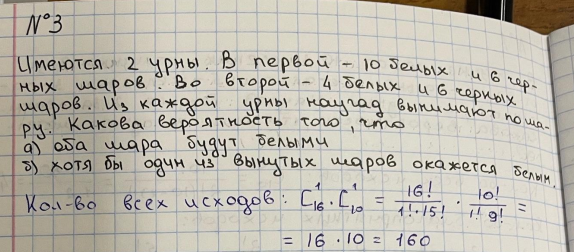 №3
Имеются 2 урны. В первой – 10 белых и 6 чер-
ных шаров. Во второй – 4 белых и 6 черных
шаров. Из каждой урны наугад вынимают по ша-
ру. Какова вероятность того, что
а) оба шара будут белыми
б) хотя бы один из вынутых шаров окажется белым.
Кол-во всех исходов: C₁₆¹ · C₁₀¹ = 16!/(1!·15!) · 10!/(1!·9!) =
= 16 · 10 = 160